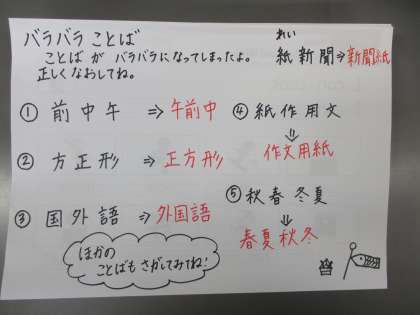 バラバラことば
ことばがバラバラになってしまったよ。
正しくなおしてね。
れい
紙新聞⇒新聞紙
① 前中午 ⇒ 午前中
② 方正形 ⇒ 正方形
③ 国外語 ⇒ 外国語
④ 紙作用文
⇓
作文用紙
⑤ 秋春冬夏
⇓
春夏秋冬
ほかの
ことばもさがしてみてね!